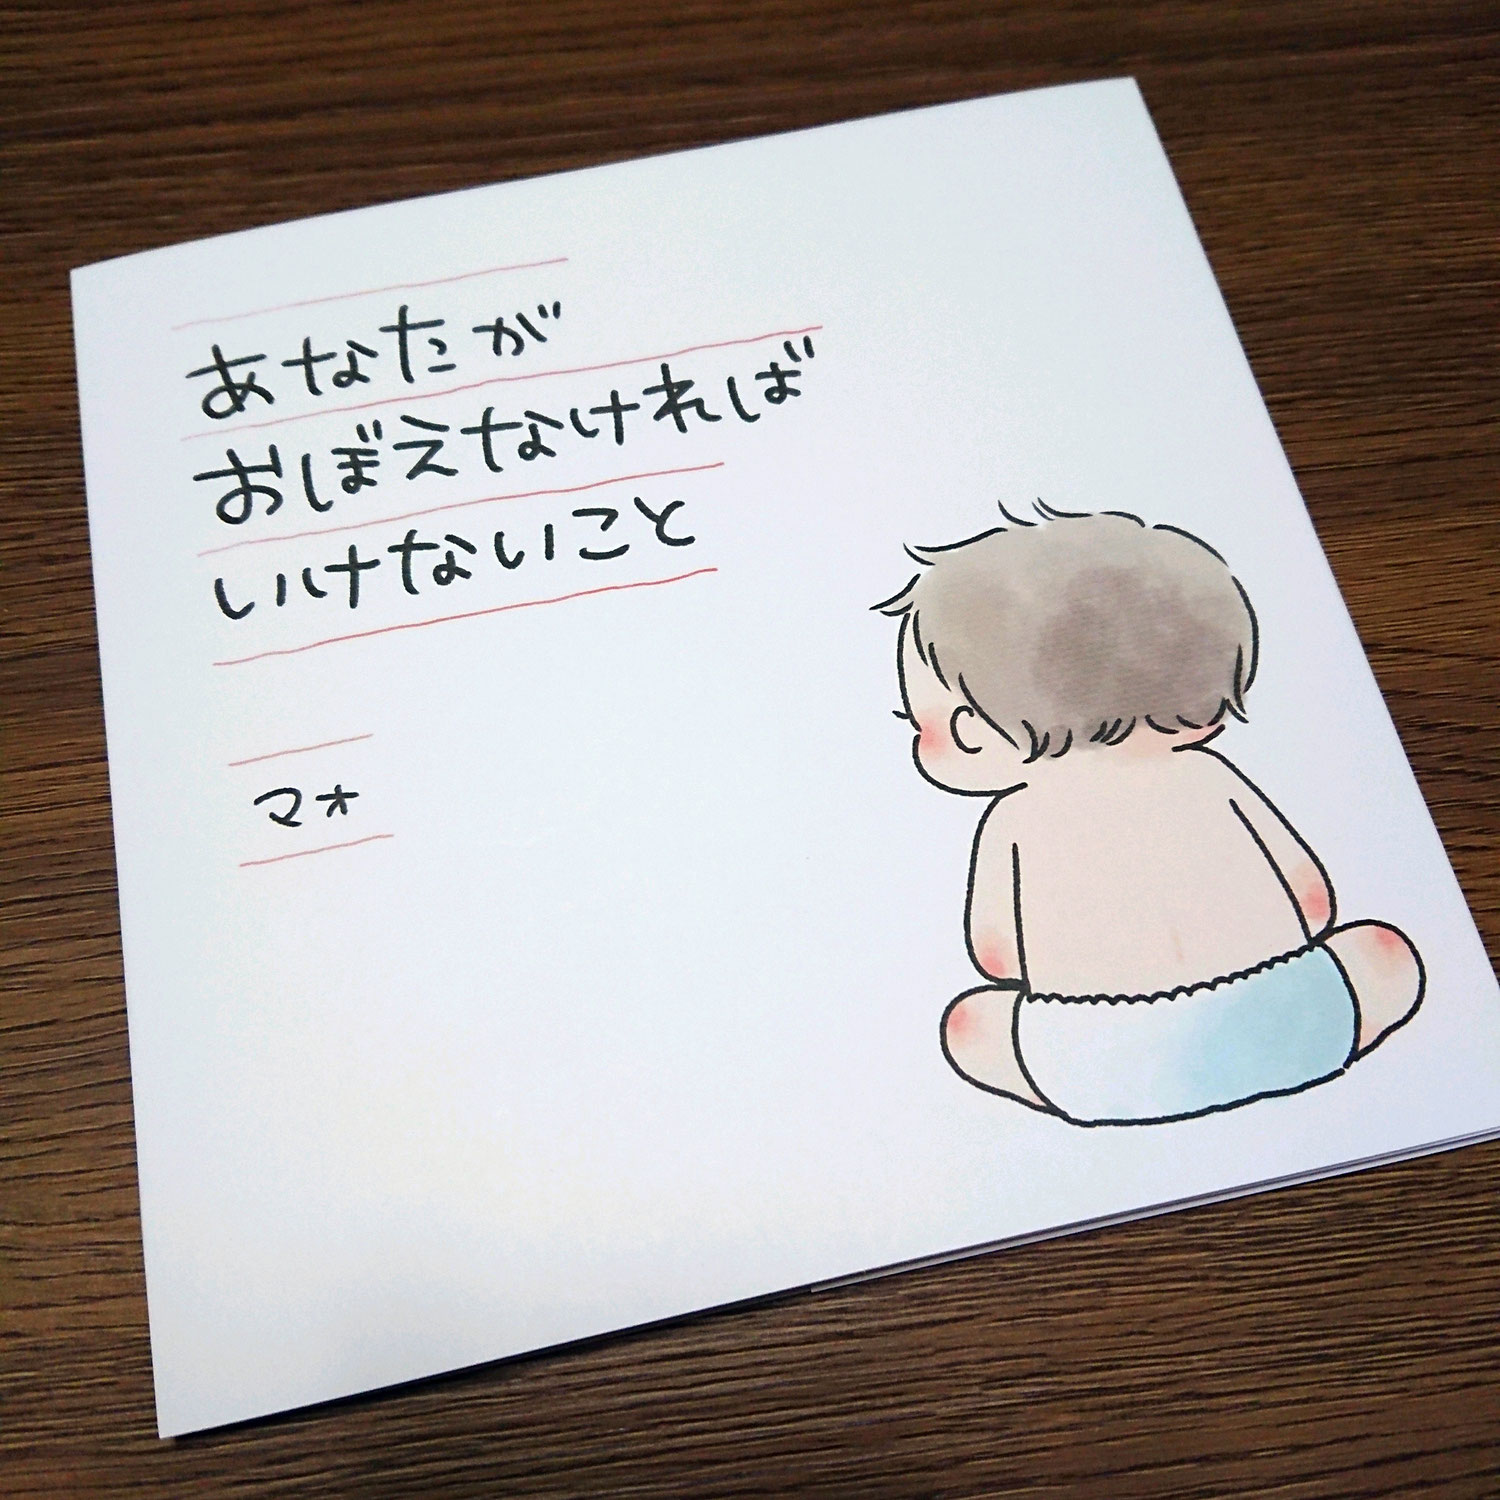 あなたが
おぼえなければ
いけないこと
マオ